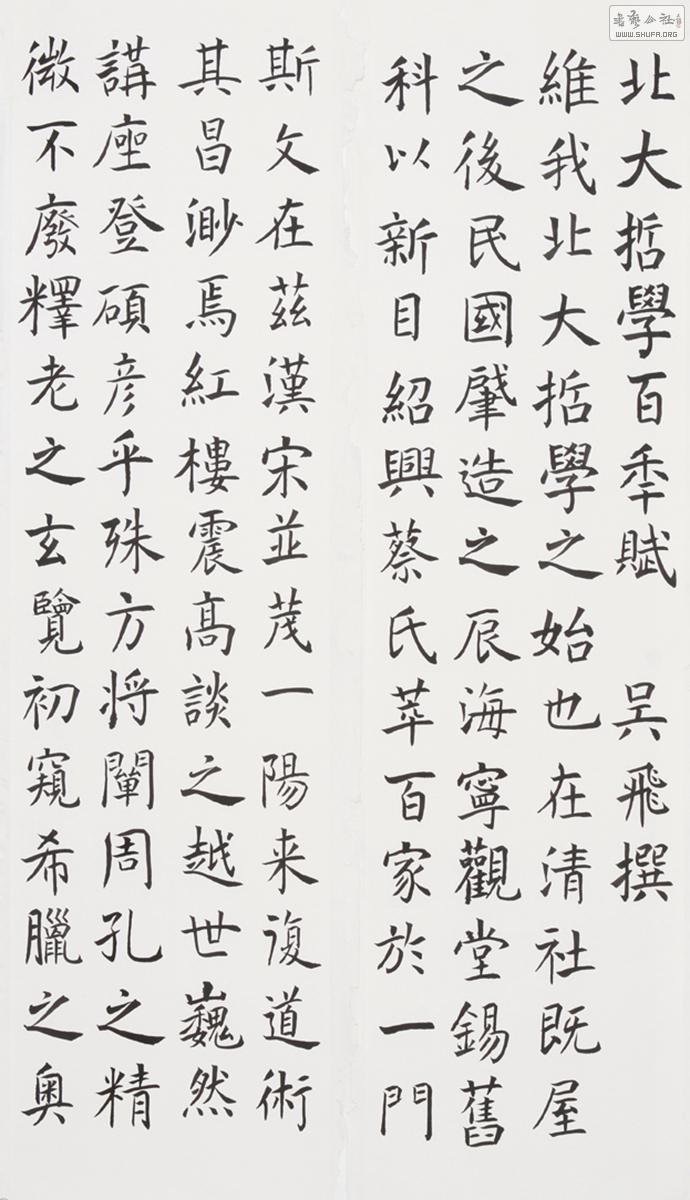 北大哲學百秊賦 吴飛撰
維我北大哲學之始也在清社既屋
之後民國肇造之辰海寧觀堂錫舊
科以新目紹興蔡氏萃百家於一門
斯文在茲漢宋並茂一陽来復道術
其昌渺焉紅樓震高談之越世巍然
講座登碩彦乎殊方将闡周孔之精
微不廢釋老之玄覽初窺希臘之奥
書藝公社
WWW.SHUFA.ORG